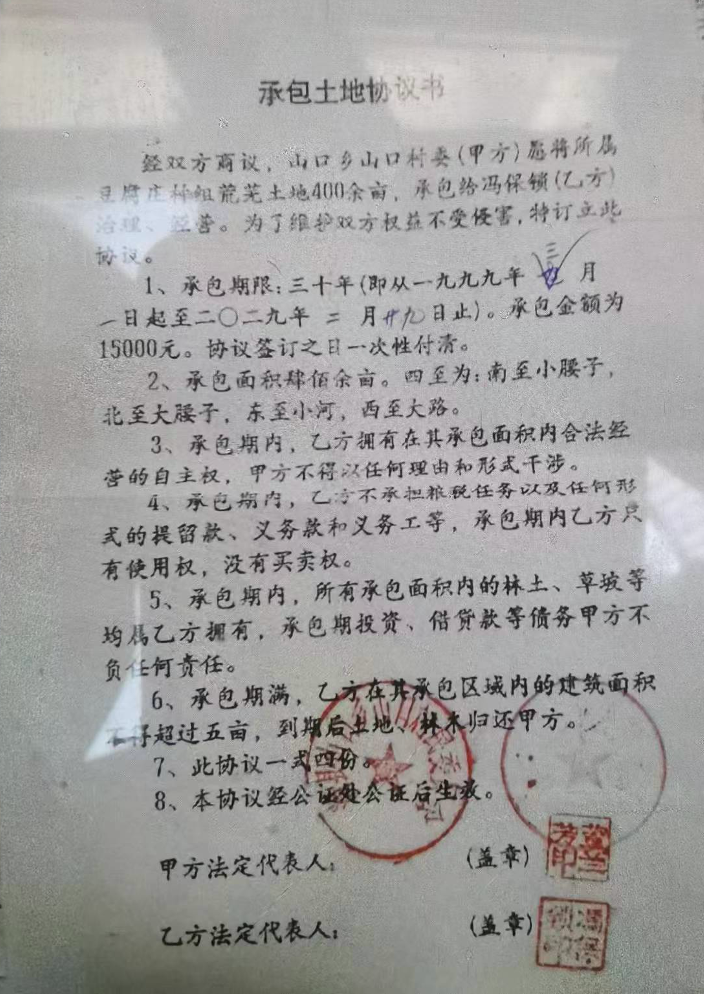 承包土地协议书
经双方商议，山口乡山口村委(甲方)愿将所属
豆腐庄村组荒芜土地400余亩，承包给冯保锁(乙方)
治理、经营。为了维护双方权益不受侵害，特订立此
协议。
1、承包期限：三十年(即从一九九九年 三 月
一日起至二〇二九年 二 月廿九日止)。承包金额为
15000元。协议签订之日一次性付清。
2、承包面积肆佰余亩。四至为：南至小腰子，
北至大腰子，东至小河，西至大路。
3、承包期内，乙方拥有在其承包面积内合法经
营的自主权，甲方不得以任何理由和形式干涉。
4、承包期内，乙方不承担粮税任务以及任何形
式的提留款、义务款和义务工等，承包期内乙方只
有使用权，没有买卖权。
5、承包期内，所有承包面积内的林土、草坡等
均属乙方拥有，承包期投资、借贷款等债务甲方不
负任何责任。
6、承包期满，乙方在其承包区域内的建筑面积
不得超过五亩，到期后土地、林木归还甲方。
7、此协议一式四份。
8、本协议经公证处公证后生效。
甲方法定代表人： (盖章)
乙方法定代表人： (盖章)
冯保锁印